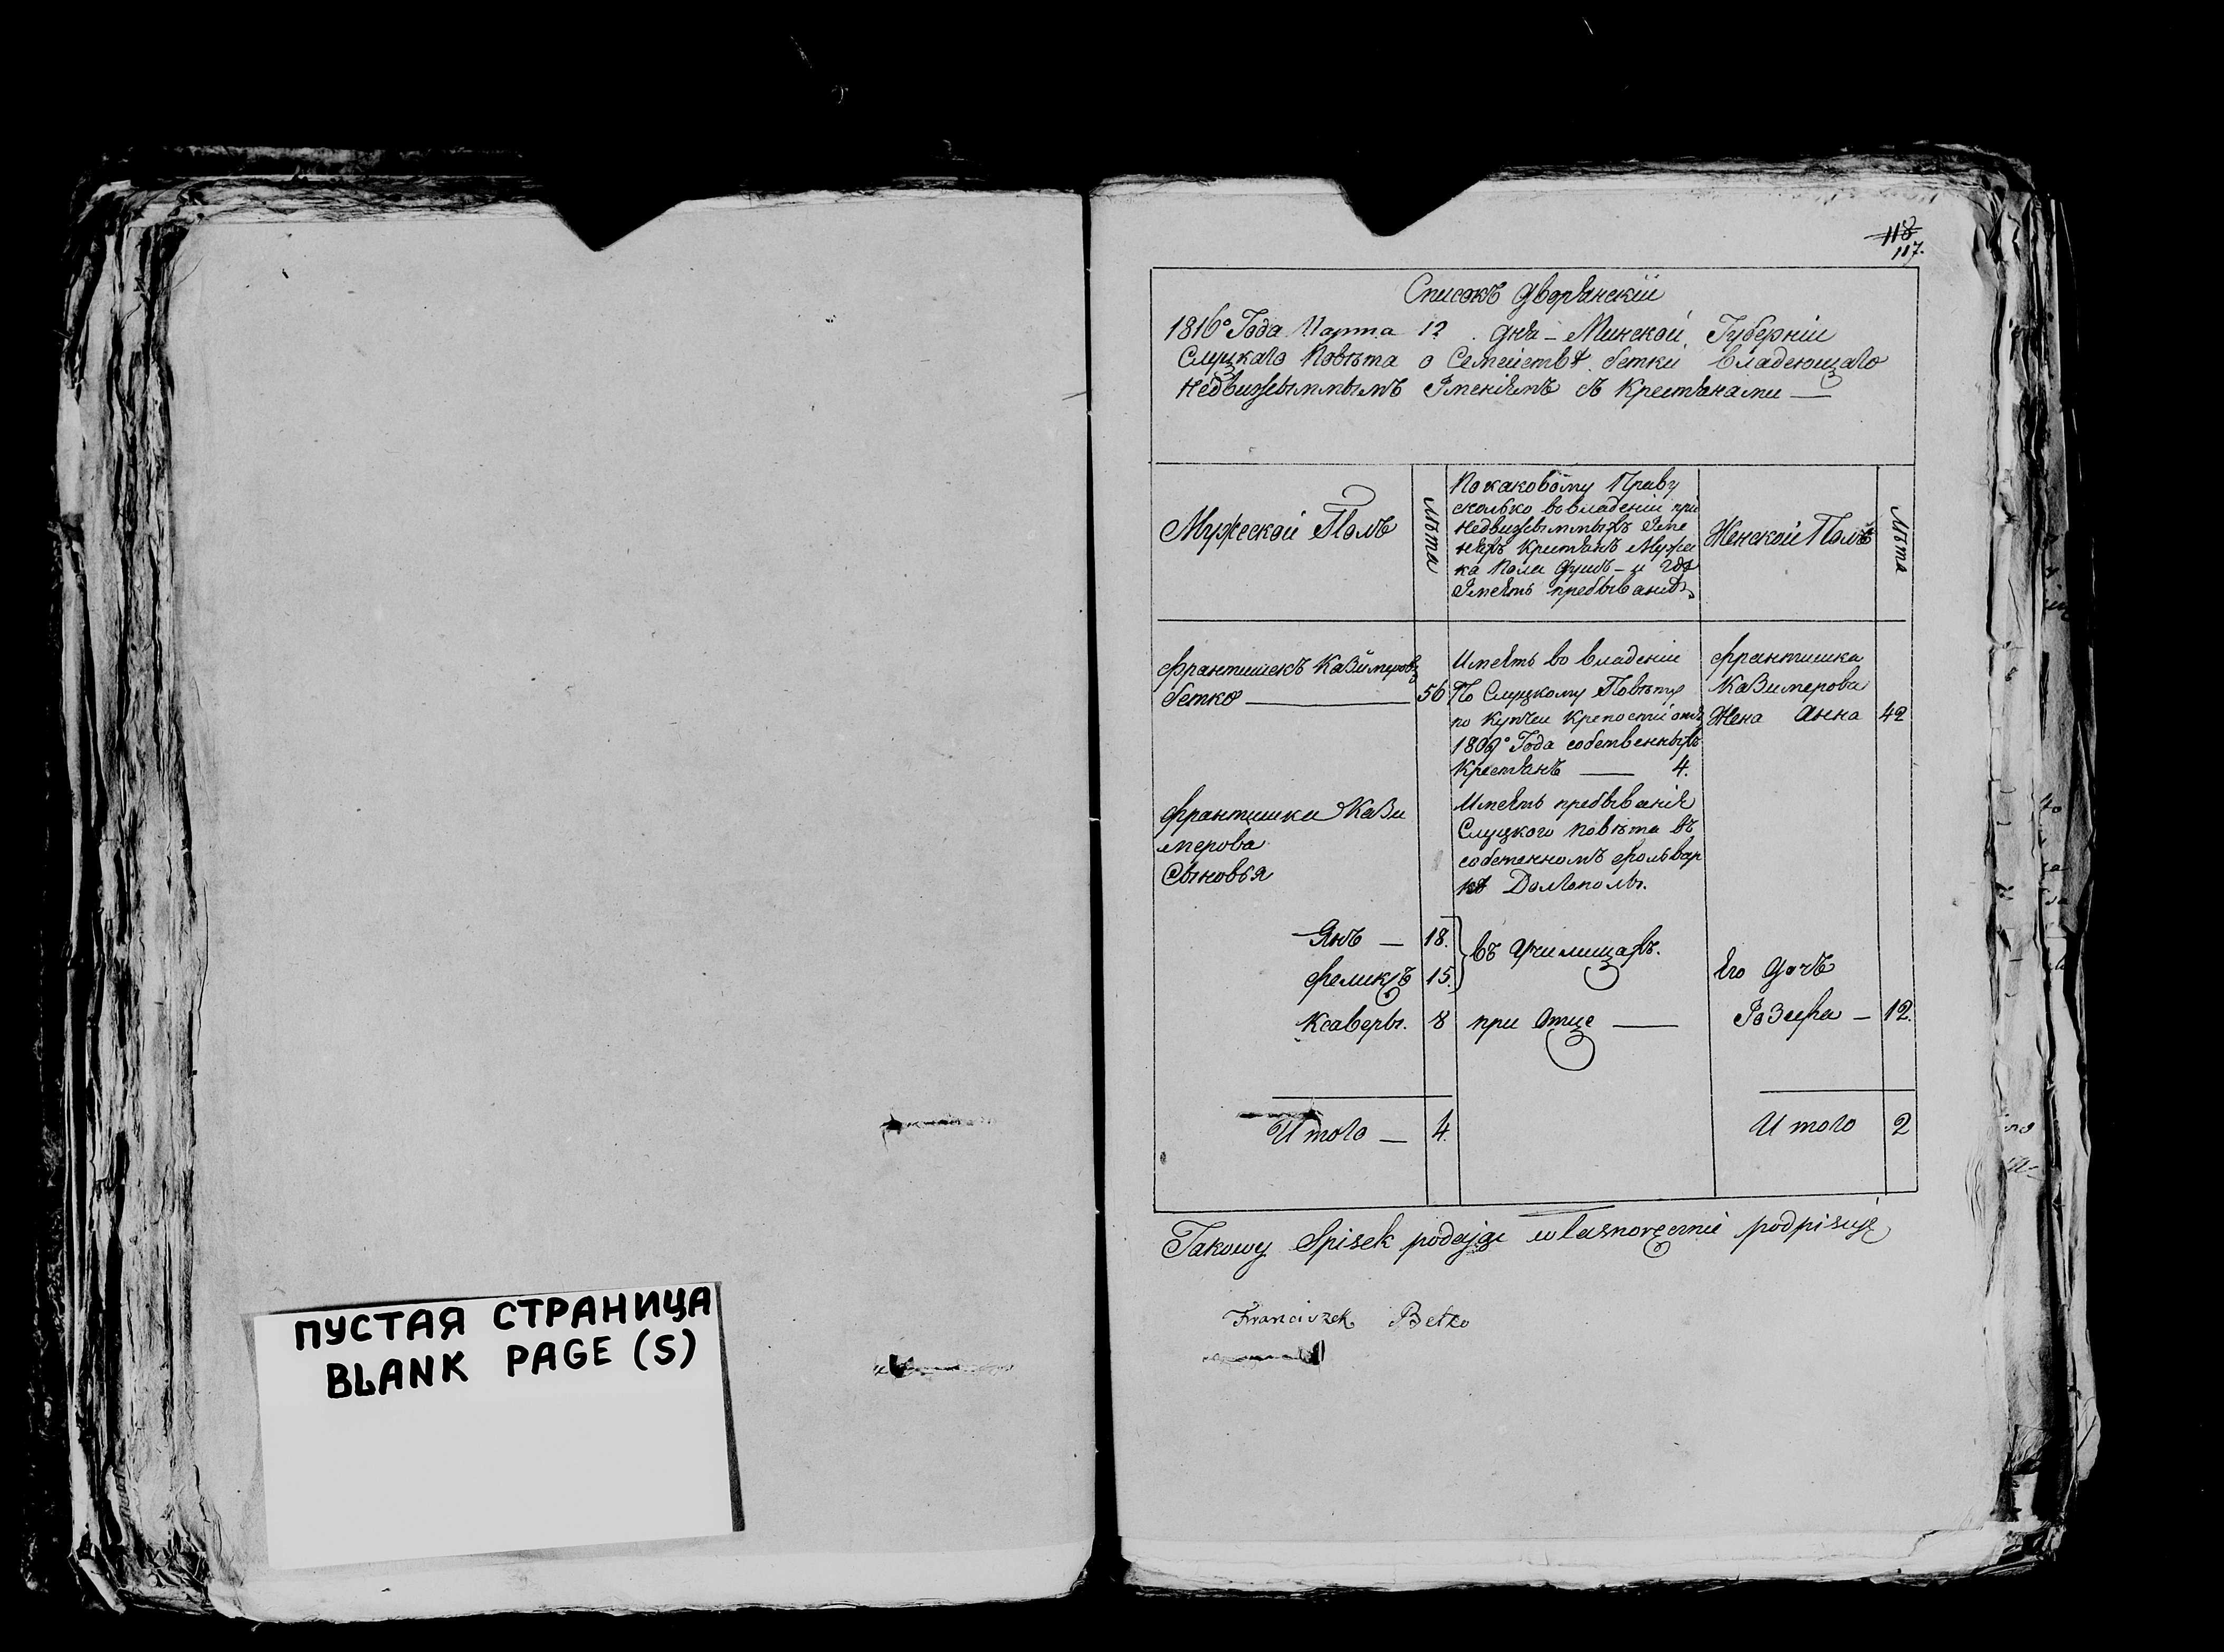 ПУСТАЯ СТРАНИЦА
BLANK PAGE (S)
118
117.
Списокъ дворянскій
1816º Года Марта 12 дня – Минской Губерніи
Слуцкаго Повѣта о Семействѣ бетки владеющаго
недвижыммымъ Именіямъ съ Крестянами —
Мужеской Полъ
лѣта
По каковому Праву
сколько во владеніи при
недвижыммыхъ Име
няхъ Крестянъ Муже
ка пола душъ – и где
Имеять пребываніе
Женской Полъ
Лѣта
Франтишекъ Казимеровъ
бетко — 56
Имеять во владеніи
По Слуцкому Повѣту
по купчеи крепости отъ
1809º Года собственныхъ
Крестянъ — 4.
Франтишка
Казимерова
Жена Анна 42
Франтишка Кази
мерова
Сыновья
Имеять пребываніе
Слуцкого повѣта въ
собстенномъ фольвар
ке Долгополѣ.
Янъ — 18.
Феликсъ 15.
въ Училищахъ.
Ксаверы. 8
при Отце —
Его дочь
Розефа — 12.
Итого — 4.
Итого 2
Takowy Spisek podając własnoręcznie podpisuję
Franciszek Betko